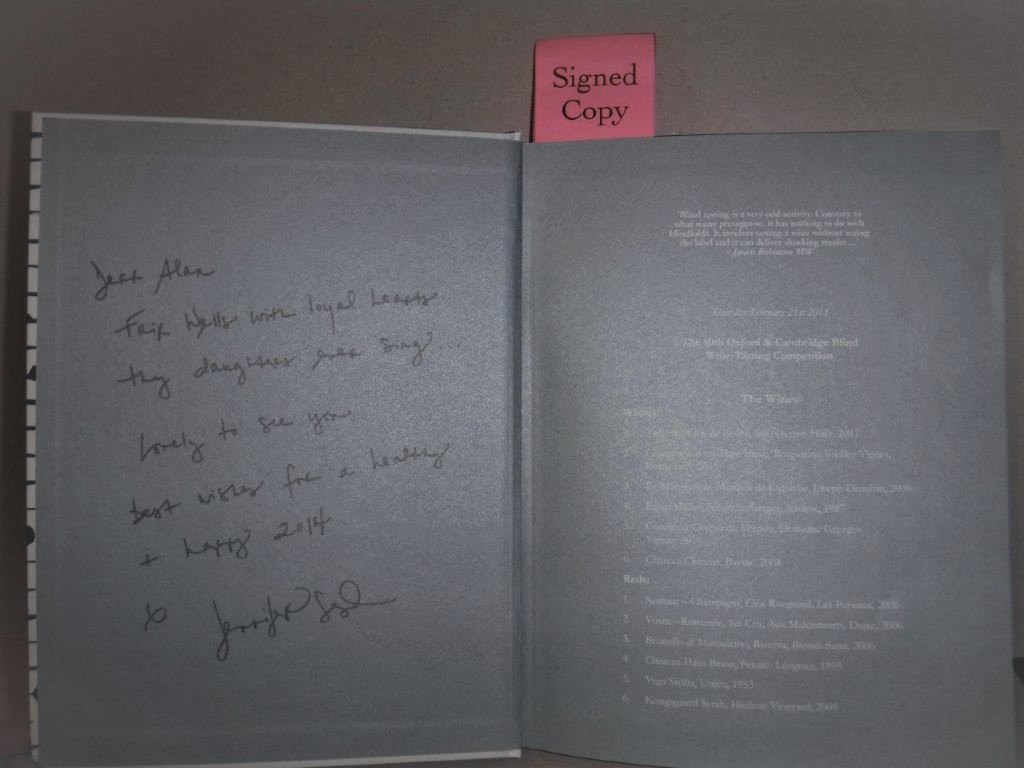 Signed
Copy
Dear Alan
Fair Wells with loyal hearts
thy daughters ever sing...
Lovely to see you
best wishes for a healthy
+ happy 2014
Jennifer
"Blind tasting is a very odd activity. Contrary to
what many presuppose, it has nothing to do with
blindfolds. It involves tasting a wine without seeing
the label and it can deliver shocking results ...
– Jancis Robinson MW
Thursday February 21st 2013
The 60th Oxford & Cambridge Blind
Wine-Tasting Competition
The Wines
Whites:
Huët, 2011
Roussanne Vieilles Vignes,
3. Le Montrachet, Marquis de Laguiche, Joseph Drouhin, 2008
4. Egon Müller, Scharzhofberger, Auslese, 1987
5. Condrieu Coteau du Vernon, Domaine Georges
Vernay, 2010
6. Chateau Climens, Barsac, 2004
Reds:
1. Saumur – Champigny, Clos Rougeard, Les Poyeaux, 2006
2. Vosne-Romanée, 1er Cru, Aux Malconsorts, Dujac, 2006
3. Brunello di Montalcino, Riserva, Biondi-Santi, 2006
4. Chateau Haut-Brion, Pessac-Léognan, 1995
5. Vega Sicilia, Unico, 1953
6. Kongsgaard Syrah, Hudson Vineyard, 2009